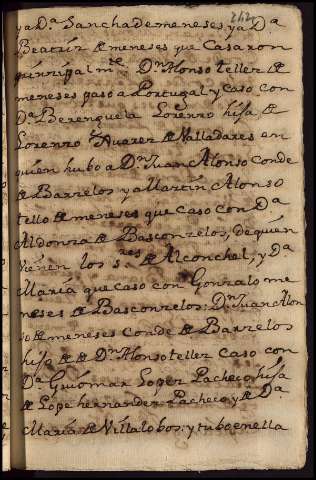 242
ya D.ª Sancha de meneses, ya D.ª
Beatriz de meneses que Casaron
prinzipal m.te D.n Alonso tellez de
meneses paso a Portugal y caso con
D.ª Berenguela Lorenzo hija de
Lorenzo Suarez de Valladares en
quien hubo a D.n Juan Alonso conde
de Barzelos y a Martin Alonso
tello de meneses que caso con Da
Aldonza de Basconzelos, de quien
vienen los s.res de Alconchel, y Da
Maria que caso con Gonzalo me
neses de Basconzelos: D.n Juan Alon
so de meneses conde de Barzelos
hijo de D.n Alonso tellez caso con
Da Guiomar Lopez Pacheco, hija
de Lope hernandez Pacheco, y de Da
Maria de Villalobos: y tubo en ella